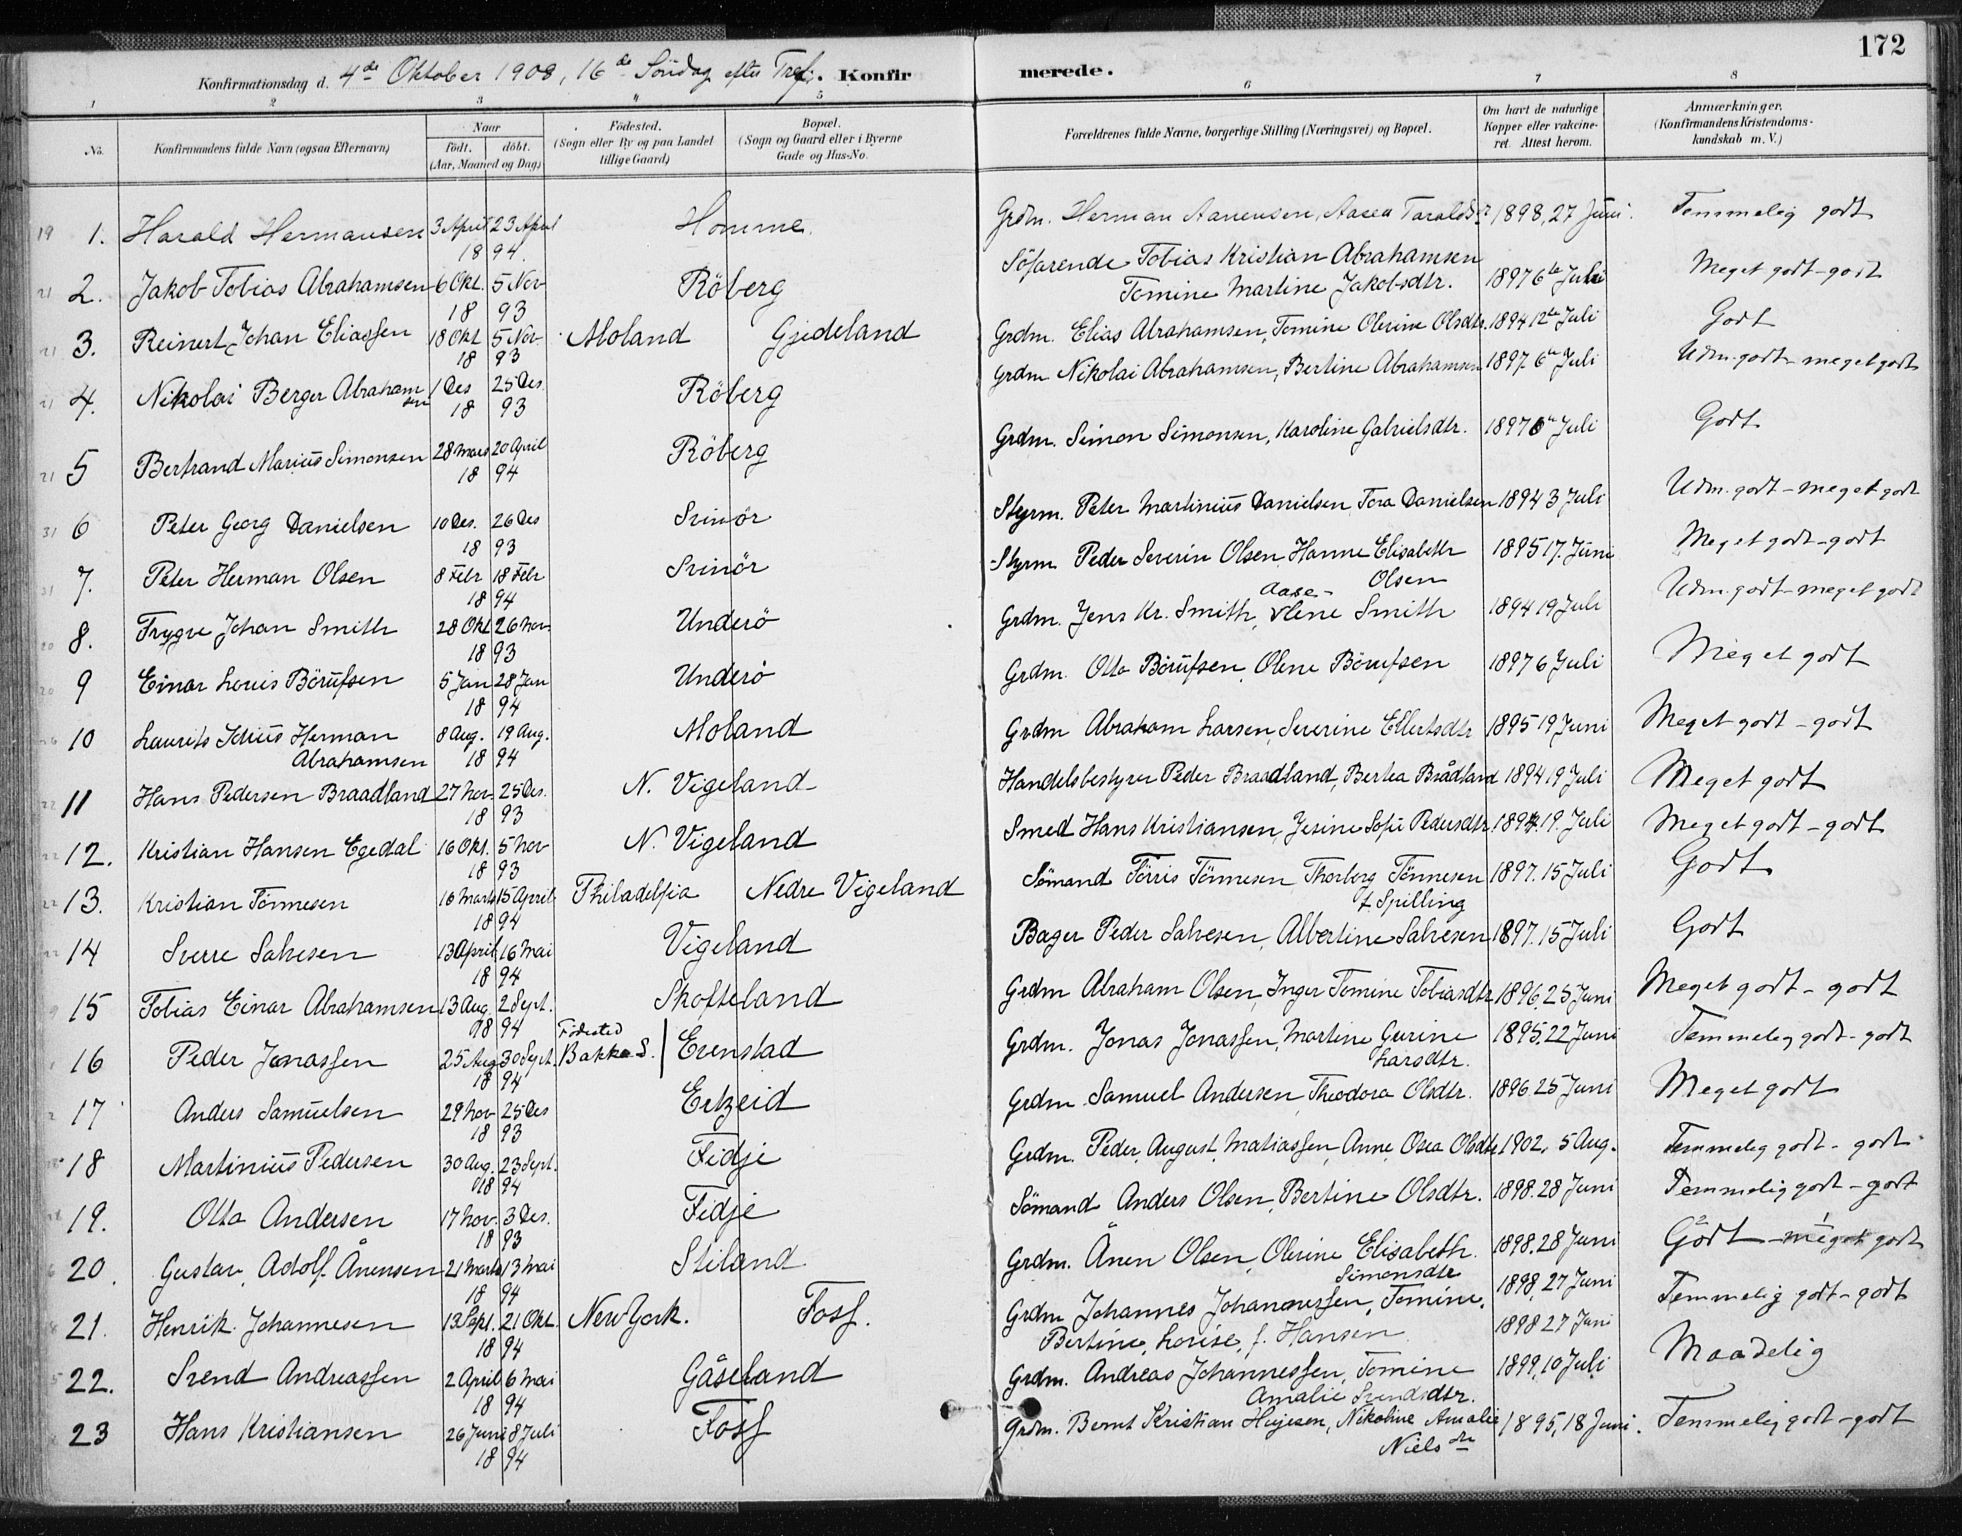 172
Konfirmationsdag d. 4de Oktober 1908, 16de Söndag efter Tref. Konfirmerede.
1 2 3 4 5 6 7 8
No. Konfirmandens fulde Navn (ogsaa Efternavn) Naar födt. döbt. (Aar, Maaned og Dag) Födested. (Sogn eller By og paa Landet tillige Gaard) Bopæl. (Sogn og Gaard eller i Byerne Gade og Hus-No. Forældrenes fulde Navne, borgerlige Stilling (Næringsvei) og Bopæl. Om havt de naturlige Kopper eller vakcineret. Attest herom. Anmærkninger. (Konfirmandens Kristendomskundskab m. V.)
19 1. Harald Hermansen 3 April 23 April 1894. Homme. Grdm. Herman Aanensen, Aasea Taraldsdtr 1898, 27 Juni. Temmelig godt
21 2. Jakob Tobias Abrahamsen 6 Okt. 5 Nov 1893 Röberg Söfarende Tobias Kristian Abrahamsen
Tomine Martine Jakobsdtr. 1897 6te Juli Meget godt-godt
21 3. Reinert Johan Eliassen 18 Okt 5 Nov. 1893 Moland Gjideland Grdm. Elias Abrahamsen, Tomine Olerine Olsdtr. 1894 12te Juli Godt
21 4. Nikolai Berger Abrahamsen 1 Des 25 Des. 1893 Röberg Grdm Nikolai Abrahamsen, Bertine Abrahamsen 1897. 6te Juli Udm. godt - meget godt
21 5 Bertrand Marius Simonsen 28 Mars 20 April 1894 Röberg Grdm. Simon Simonsen, Karoline Gabrielsdtr. 1897 6te Juli Godt
31 6 Peter Georg Danielsen 10 Des. 26 Des 1893 Svinör Styrm. Peter Martinius Danielsen, Tora Danielsen 1894 3 Juli Udm. godt - meget godt
31 7. Peter Herman Olsen 8 Febr 18 Febr 1894 Svinör Styrm Peder Severin Olsen, Hanne Elisabeth
Olsen 1895 17. Juni Meget godt-godt
20 8. Trygve Johan Smith 28 Okt 26 Nov. 1893 Underö Grdm. Jens Kr. Smith, Aase-Olene Smith 1894 19 Juli Udm. godt - meget godt
20 9 Einar Louis Börufsen 5 Jan 28 Jan 1894 Underö Grdm. Otto Börufsen, Olene Börufsen 1897 6 Juli Meget godt
10 Laurits Julius Herman
Abrahamsen 8 Aug. 19 Aug. 1894 Moland Grdm Abraham Larsen, Severine Ellertsdtr 1895 19 Juni Meget godt - godt
22 11 Hans Pedersen Braadland 27 Nov. 25 Des. 1893 N. Vigeland Handelsbestyrer Peder Braadland, Bertea Brådland 1894 19 Juli Meget godt
22 12. Kristian Hansen Egedal 16 Okt. 5 Nov 1893 N. Vigeland Smed Hans Kristiansen, Jesine Sofie Pedersdtr 1894. 19. Juli Meget godt - godt
22 13. Kristian Tönnesen 16 Marts 15 April 1894 Philadelfia Nedre Vigeland Sömand Törris Tönnesen Thorborg Tönnesen
f. Spilling 1897. 15 Juli Godt
22 14 Sverre Salvesen 13 April 16 Mai 1894 Vigeland Bager Peder Salvesen, Albertine Salvesen 1897. 15 Juli Godt
15 Tobias Einar Abrahamsen 13 Aug. 2 Sept. 1894 Skofteland Grdm Abraham Olsen, Inger Tomine Tobiasdtr 1896. 25 Juni Meget godt - godt
16 Peder Jonassen 25 Aug 30 Sept. 1894 Födested Bakke S. Evenstad Grdm. Jonas Jonassen, Martine Gurine
Larsdtr. 1895. 22 Juni Temmelig godt - godt
17 Anders Samuelsen 29 Nov 25 Des 1893 Ertzeid Grdm Samuel Andersen, Theodora Olsdtr. 1896 25 Juni Meget godt
18 Martinius Pedersen 30 Aug. 23 Sept. 1894 Fidje Grdm. Peder August Matiassen, Anne Osea Olsdtr 1902. 5 Aug. Temmelig godt - godt
19. Otto Andersen 17 Nov. 3 Des. 1893 Fidje Sömand Anders Olsen, Bertine Olsdtr. 1898. 28 Juni Temmelig godt - godt
20. Gustav Adolf Ånensen 21 Marts 13 Mai 1894 Stiland Grdm. Ånen Olsen, Olerine Elisabeth
Simonsdtr 1898. 28 Juni Godt - meget godt
21. Henrik Johannesen 13 Sept. 21 Okt. 1894 New York. Foss. Grdm Johannes Johannessen, Tomine 1898, 27 Juni Temmelig godt - godt
Bertine, Lovise, f. Hansen 1898 27 Juni
22. Svend Andreassen 2 April 6 Mai 1894 Gåseland Grdm. Andreas Johannessen, Tomine
Amalie Svendsdtr. 1899, 10 Juli Maadelig
23 Hans Kristiansen 26 Juni 8 Juli 1894 Foss Grdm. Bernt Kristian, Nikoline Amalie
Nielsdtr 1895, 18 Juni. Temmelig godt - godt